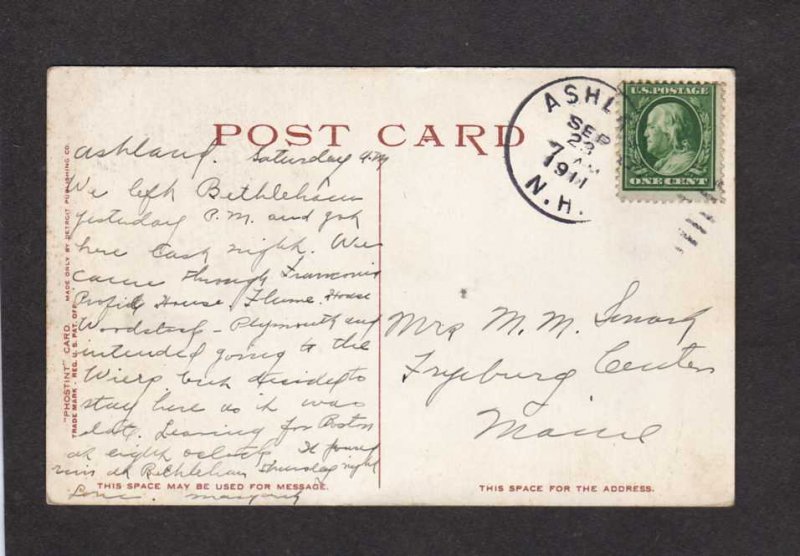 POST CARD
ASHL
SEP
23
7 AM
1911
N.H.
U.S. POSTAGE
ONE CENT
Ashland. Saturday AM
We left Bethlehem
yesterday P.M. and got
here last night. We
came through Franconia
Profile House, Flume House
Woodstock - Plymouth and
intended going to the
Wiers but decided to
stay here as it was
late. Leaving for Boston
at eight oclock. It
at Bethlehem Thursday night
Love. Margaret
Mrs M. M.
Fryeburg Center
Maine
"PHOSTINT" CARD MADE ONLY BY DETROIT PUBLISHING CO.
TRADE MARK - REG. U.S. PAT. OFF.
THIS SPACE MAY BE USED FOR MESSAGE.
THIS SPACE FOR THE ADDRESS.